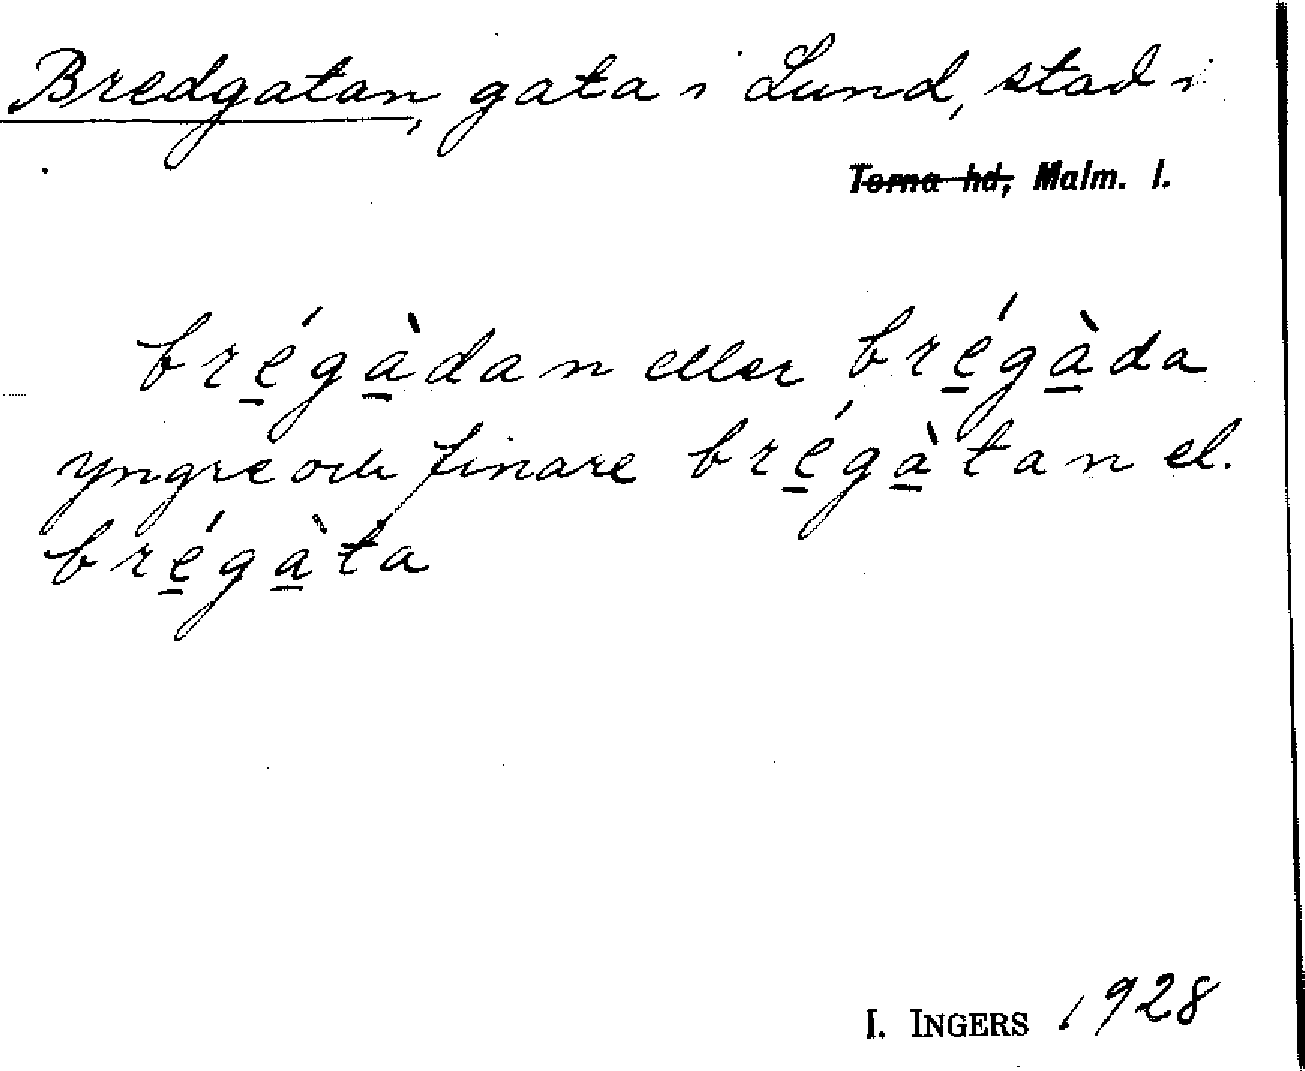 Bredgatan, gata i Lund, stad i
Torna hd, Malm. l.
bré̱gà̱dan eller bré̱gà̱da
yngre och finare bré̱gà̱tan el.
bré̱gà̱ta
I. INGERS 1928